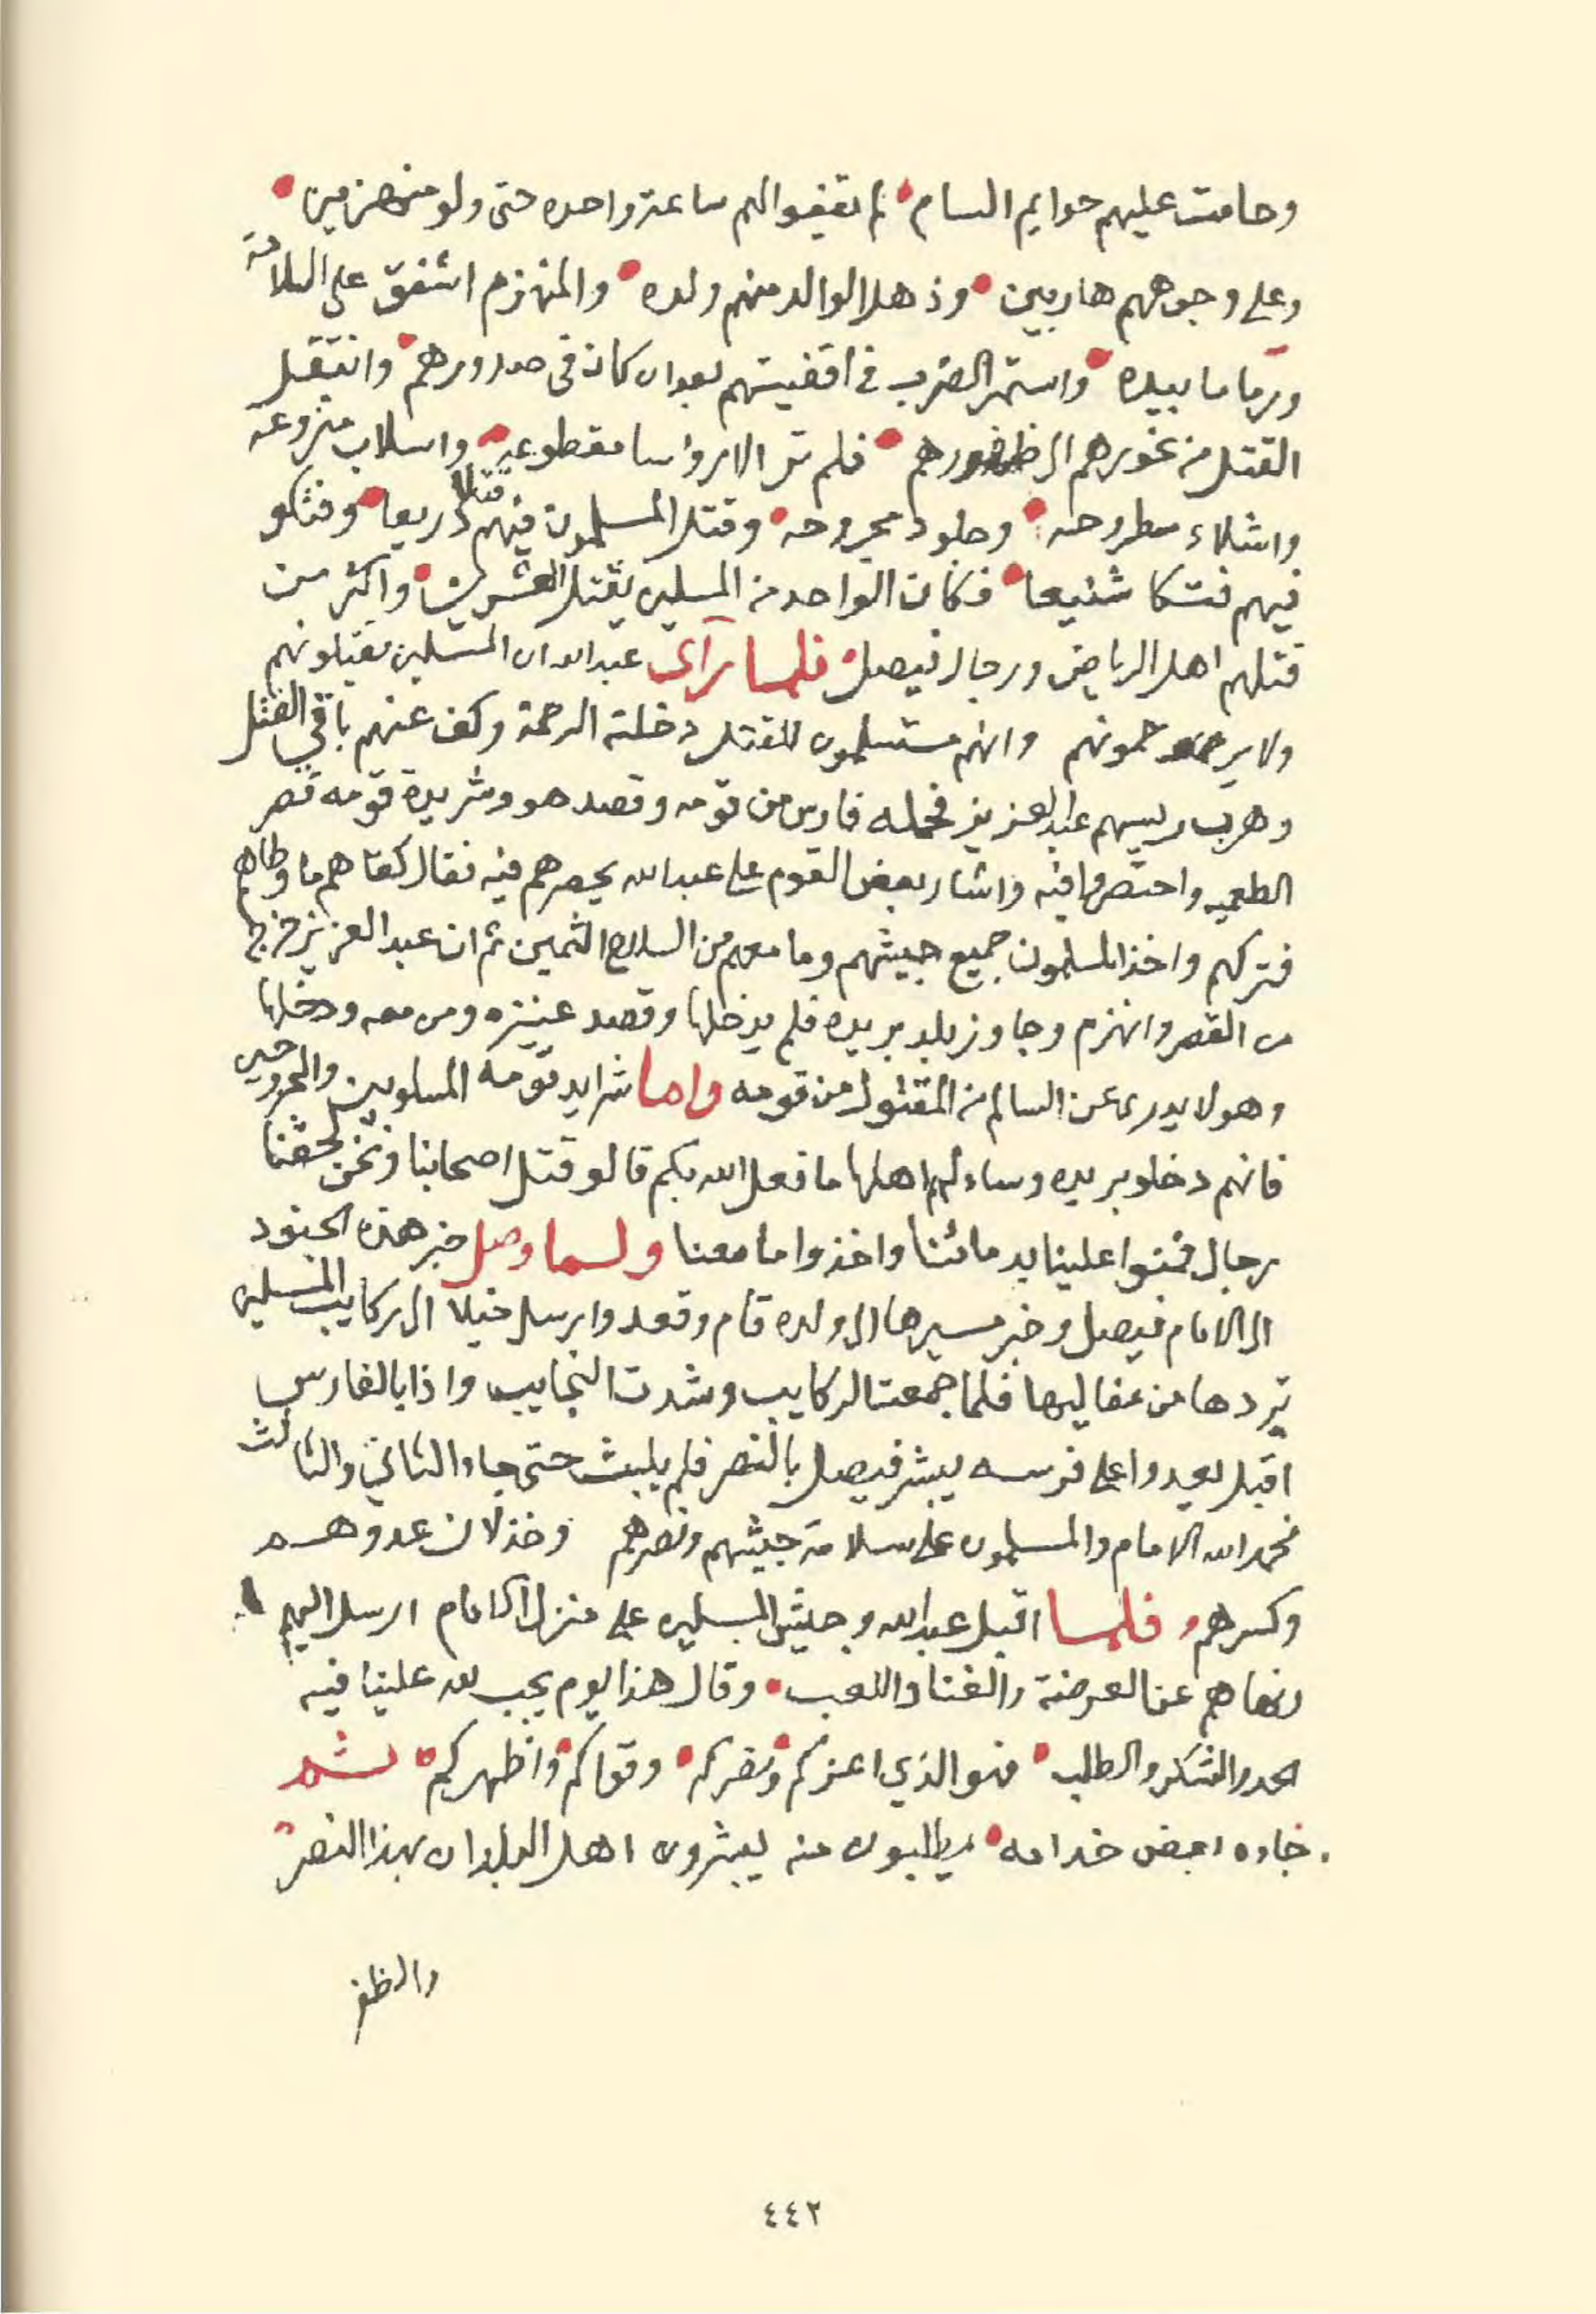 وحامت عليهم حوايم السام لم يقفوا لهم ساعة واحده حتى ولو منهزمين
وعلى وجوههم هاربين وذهل الوالد منهم ولده والمنهزم اشفق على السلامة
ورما ما بيده واستمر الضرب في اقفيتهم بعد ان كان في صدورهم وانتقل
القتل من نحورهم الى ظهورهم فلم تر الا رواسا مقطوعه واسلاب منزوعة
واشلاء مطروحه وجلود مجروحه وقتل المسلمون فيهم قتلا ذريعا وفتكو
فيهم فتكا شنيعا فكان الواحد من المسلمين يقتل العشرين واكثر من
قتلهم اهل الرياض ورجال فيصل فلما رآى عبدالله ان المسلمين يقتلونهم
ولا يرحمونهم وانهم مستسلمون للقتل دخلته الرحمة وكف عنهم باقي القتل
وهرب رييسهم عبدالعزيز فحمله فارس من قومه وقصد هو وشريدة قومه قصر
الطعميه واحتصروا فيه واشار بعض القوم على عبدالله يحصرهم فيه فقال كفاهم ما وطاهم
فتركهم واخذ المسلمون جميع جيشهم وما معهم من السلاح الثمين ثم ان عبدالعزيز خرج
من القصر وانهزم وجاوز بلد بريده فلم يدخلها وقصد عنيزه ومن معه ودخلها
وهو لا يدرى عن السالم من المقتول من قومه واما شرايد قومه المسلوبين والمجروحين
فانهم دخلو بريده وساءلهم اهلها ما فعل الله بكم قالو قتل اصحابنا ونحن لحقنا
رجال فمنوا علينا بدمائنا واخذوا ما معنا ولما وصل خبر هذه الجنود
الى الامام فيصل وخبر مسيرها الى ولده قام وقعد وارسل خيلا الى ركايب المسلمين
تردها من مفاليها فلما جمعت الركايب وشدت النجايب واذا بالفارس
اقبل يعدوا على فرسه يبشر فيصل بالنصر فلم يلبث حتى جاء الثاني والثالث
فحمد الله الامام والمسلمون على سلامة جيشهم ونصرهم وخذلان عدوهم
وكسرهم فلما اقبل عبدالله وجيش المسلمين على منزل الامام ارسل اليهم
ونهاهم عن العرضة والغنا واللعب وقال هذا يوم يجب لله علينا فيه
الحمد والشكر والطلب فهو الذي اعزكم ونصركم وقواكم واظهركم ثم
جاءه بعض خدامه يطلبون منه يبشرون اهل البلدان بهذا النصر
والظفر
٤٤٢